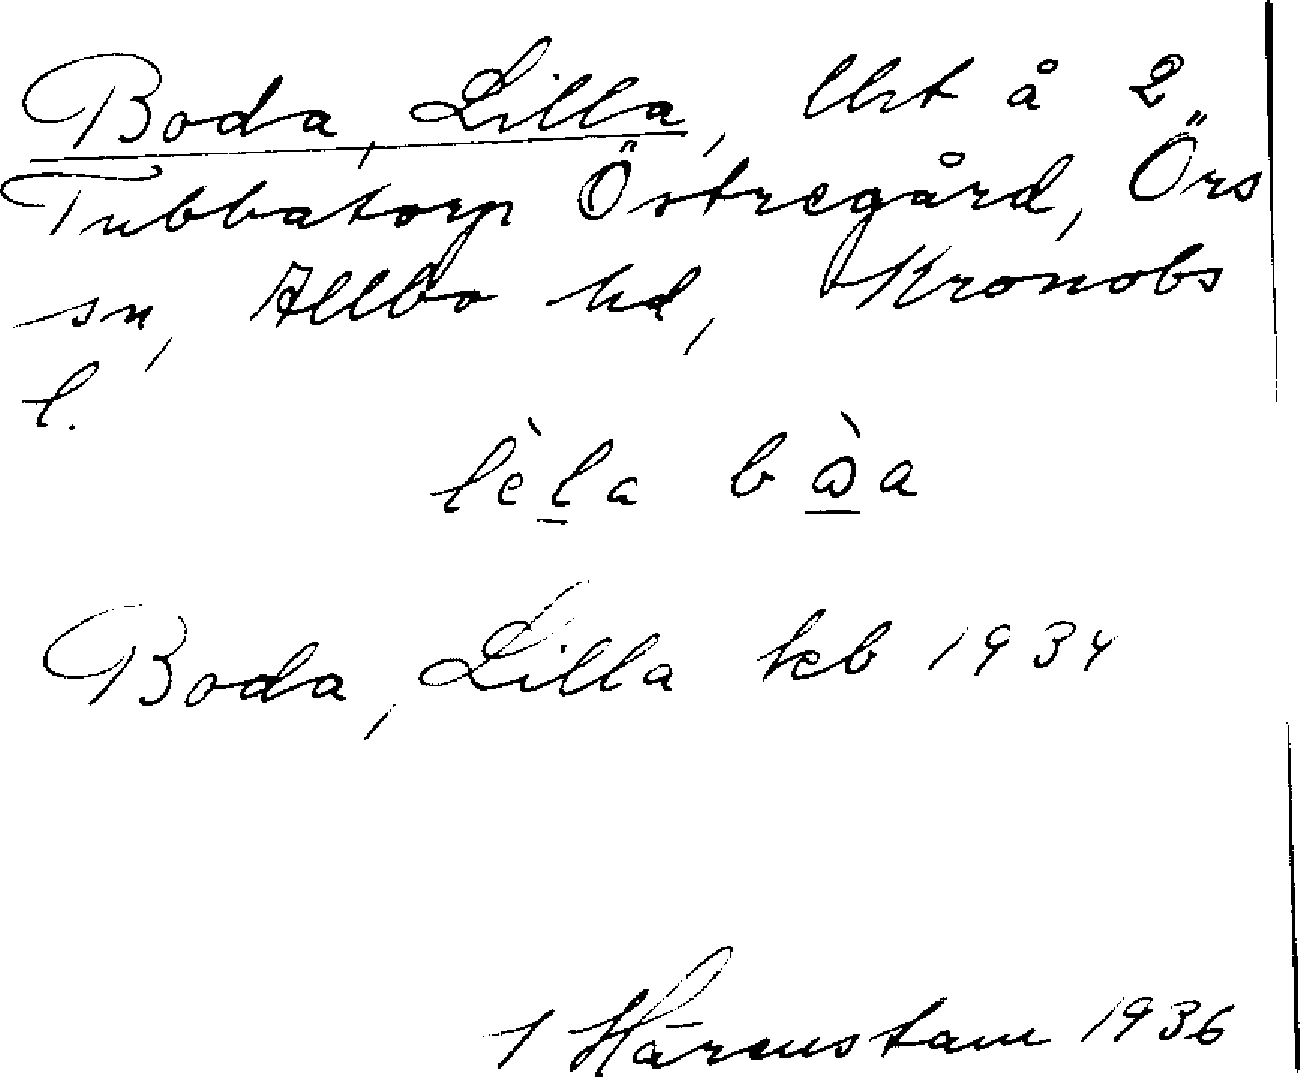 Boda, Lilla, lht å 2
Tubbatorp Östregård, Örs
sn, Allbo hd, Kronobs
l.
lèla bòa
Boda, Lilla keb 1934
1 Härenstam 1936